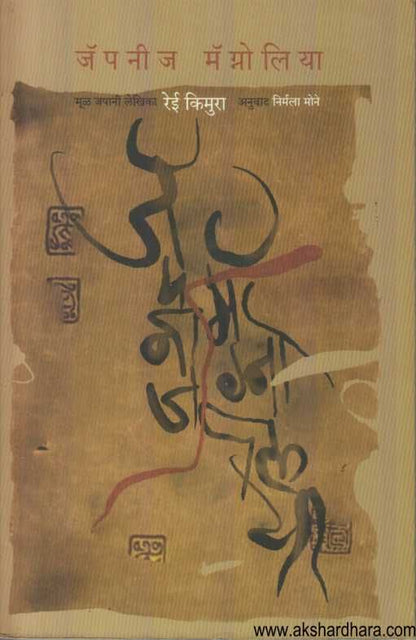 जॅपनीज मॅग्नोलिया
मूळ जपानी लेखिका रेई किमुरा अनुवाद निर्मला मोने
जॅपनीज
मॅग्नोलिया
www.akshardhara.com